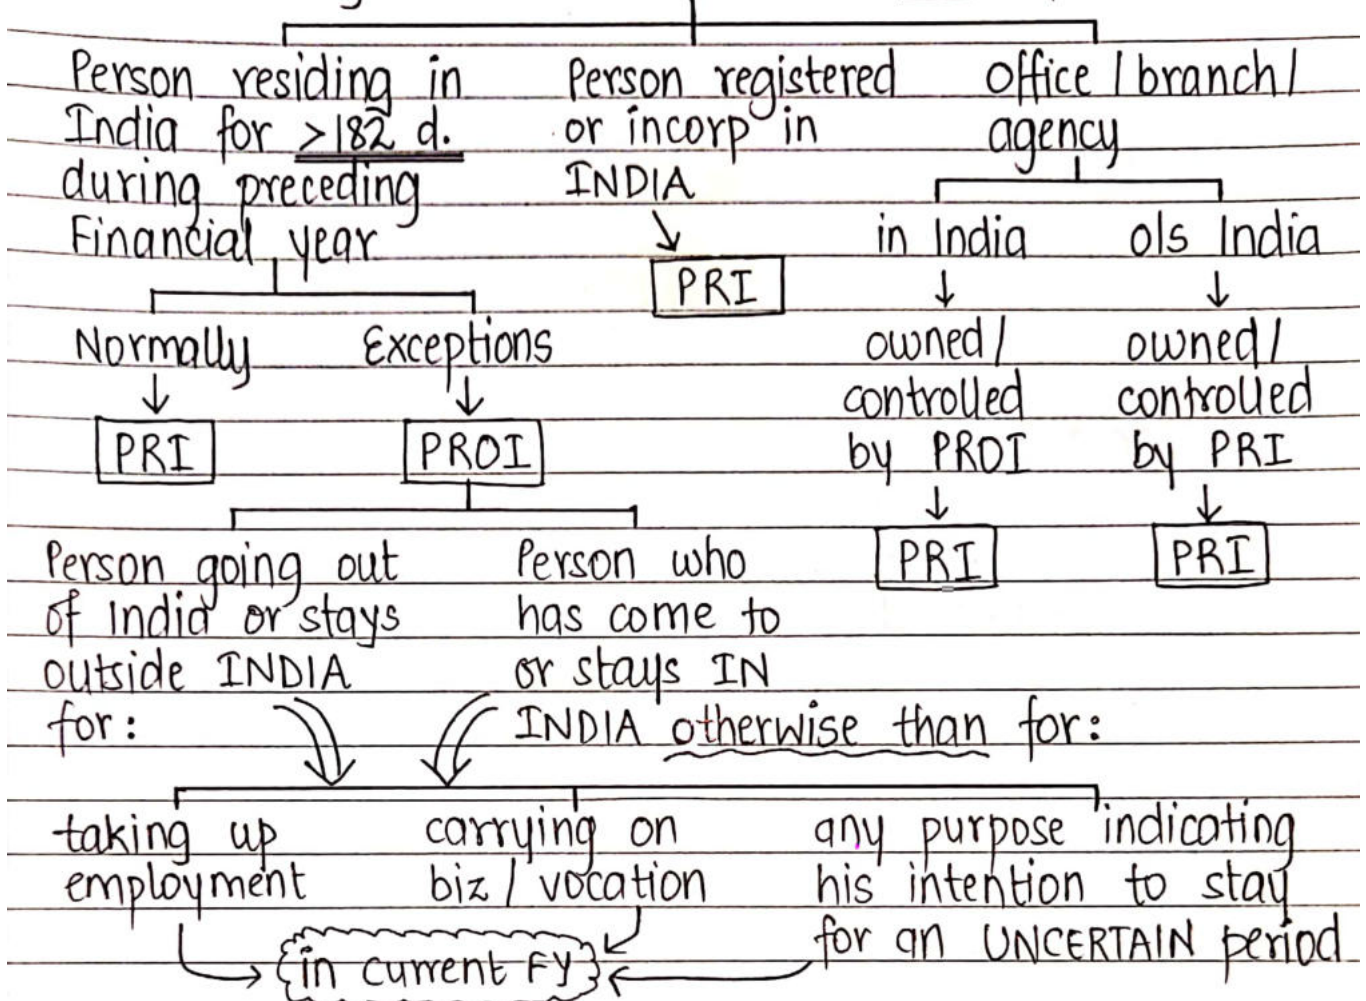 Person residing in
India for >182 d.
during preceding
Financial year
Person registered
or incorp in
INDIA
PRI
Office / branch /
agency
in India
o/s India
Normally
Exceptions
PRI
PROI
owned /
controlled
by PROI
PRI
owned /
controlled
by PRI
PRI
Person going out
of India or stays
outside INDIA
for:
Person who
has come to
or stays IN
INDIA otherwise than for:
taking up
employment
carrying on
biz / vocation
any purpose indicating
his intention to stay
for an UNCERTAIN period
in current FY